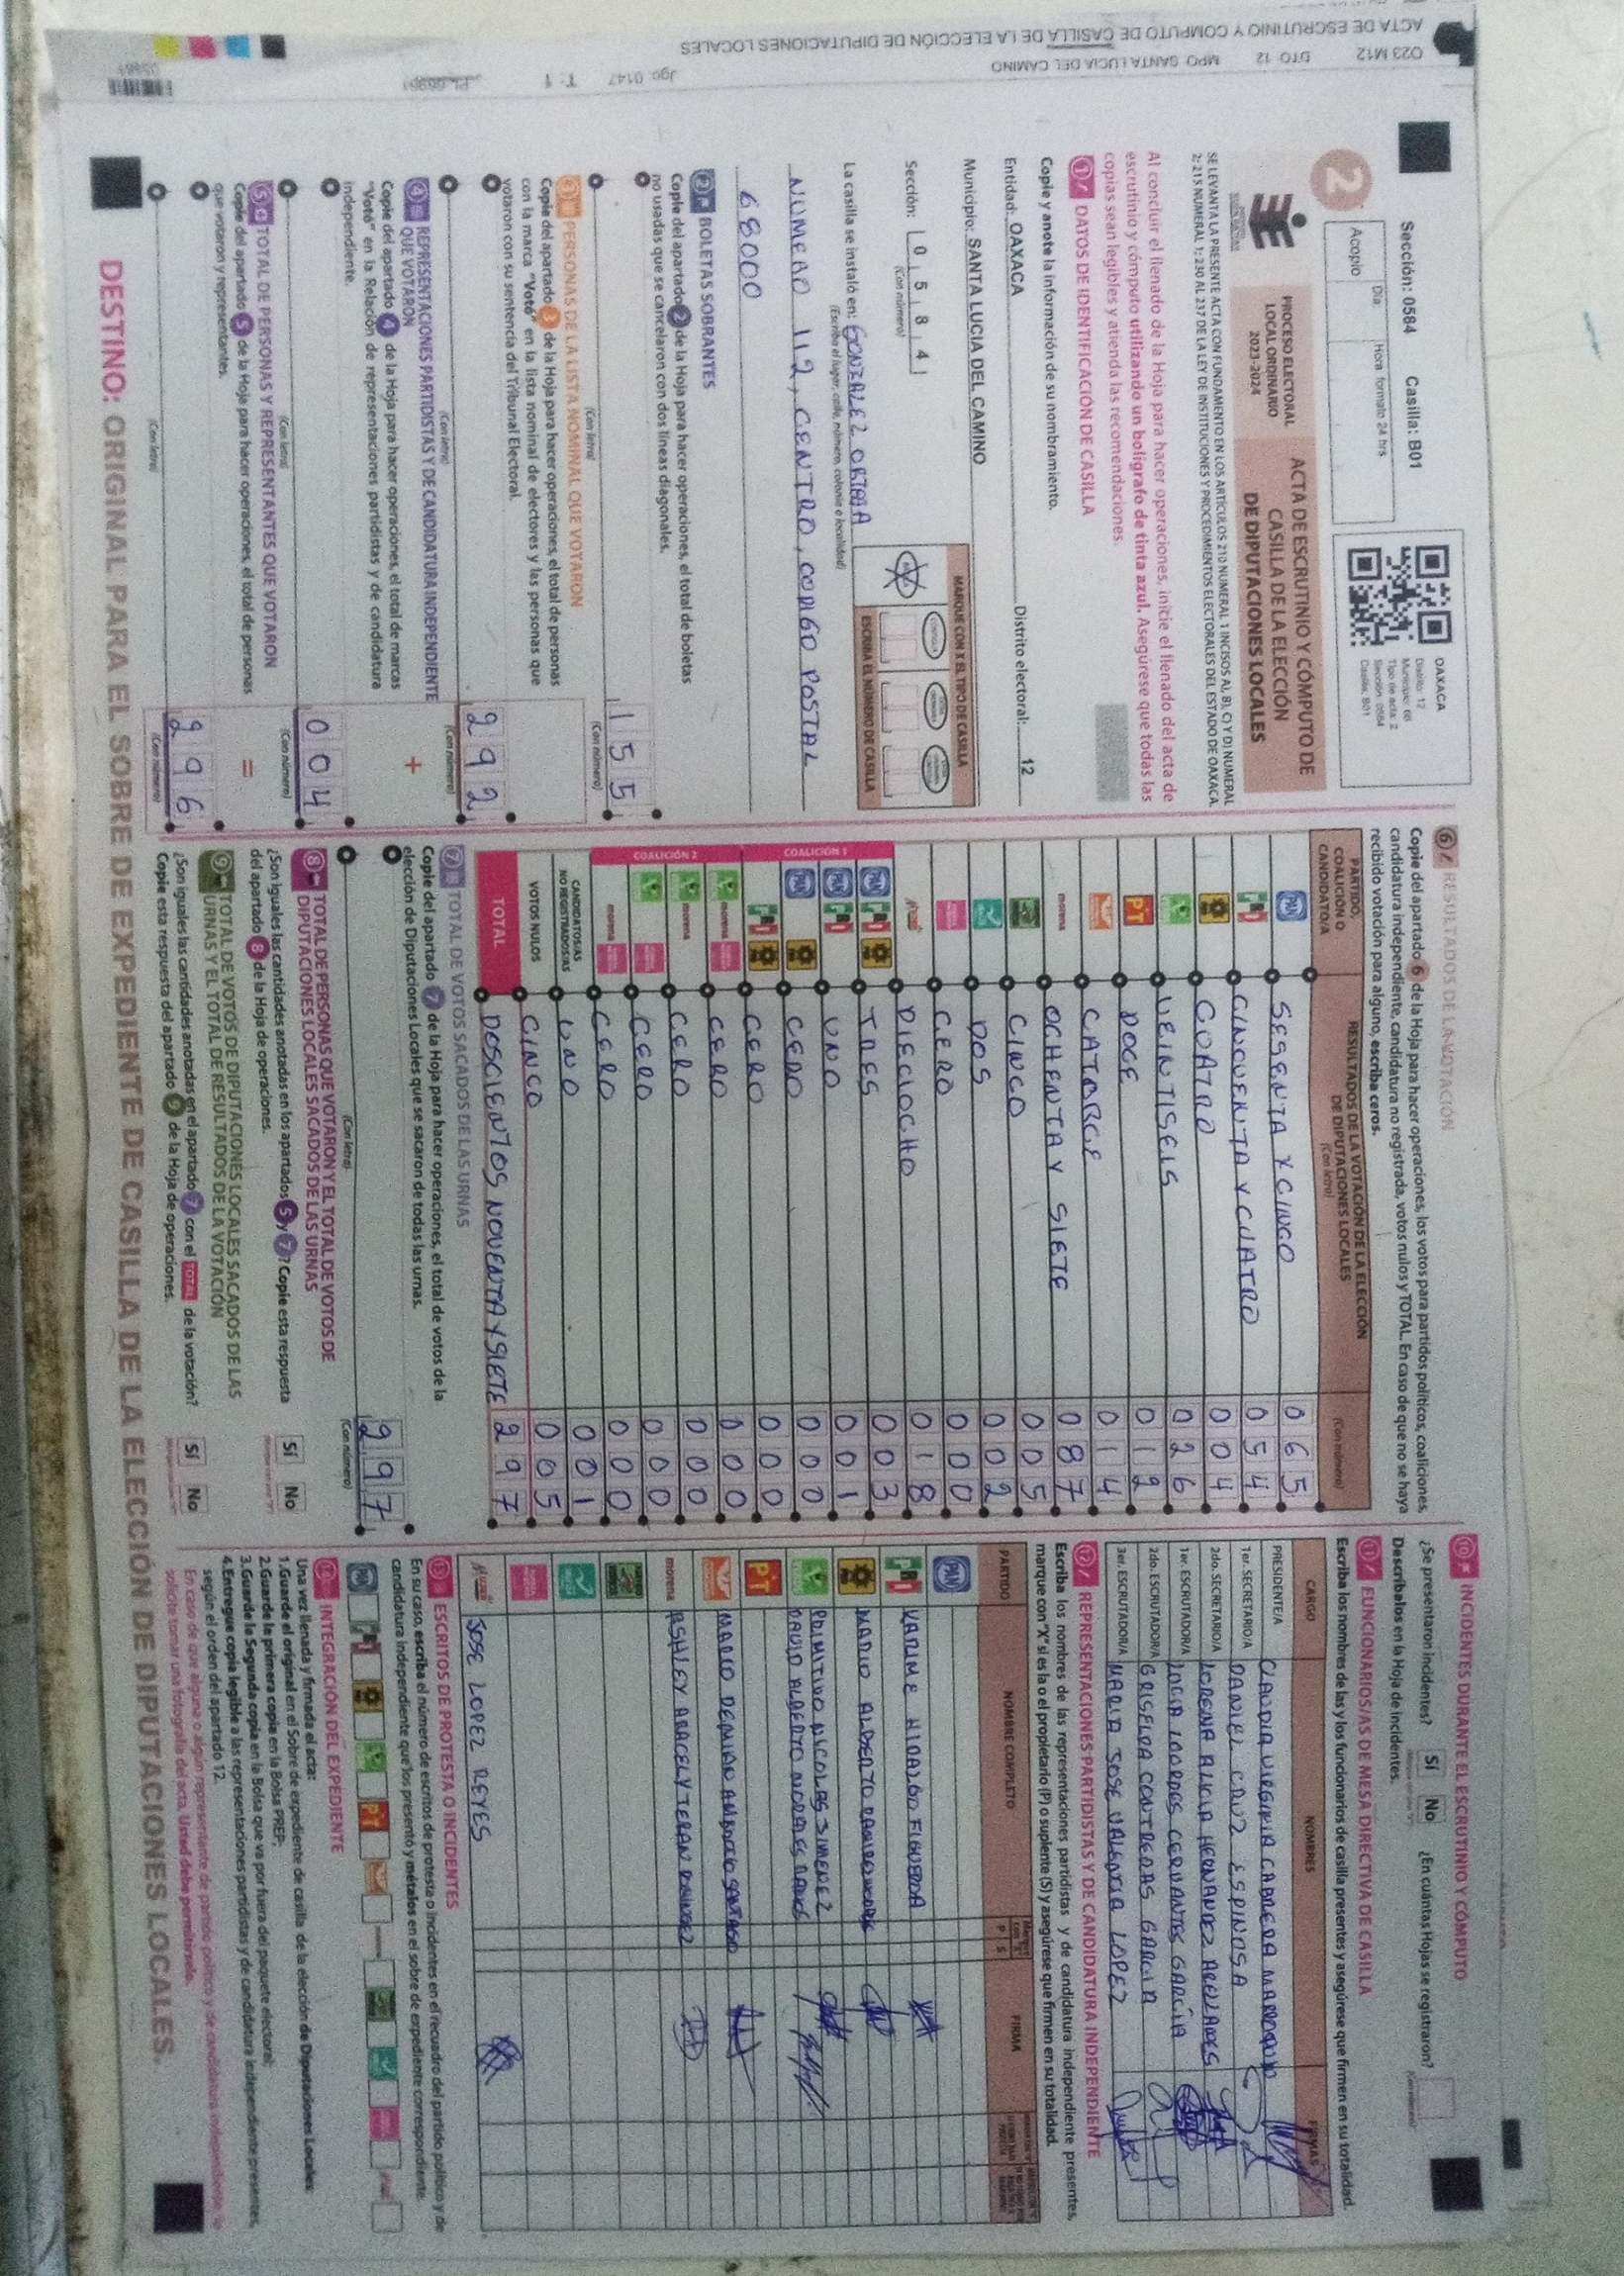 ACTA DE ESCRUTINIO Y COMPUTO DE CASILLA DE LA ELECCIÓN DE DIPUTACIONES LOCALES
O23 M12 DTO 12 MPO SANTA LUCIA DEL CAMINO
Jgo 0147 T: 1
Sección: 0584 Casilla: B01
2
Día Hora formato 24 hrs
Acopio
OAXACA
Distrito: 12
Municipio: 68
Tipo de acta: 2
Sección: 0584
Casilla: B01
PROCESO ELECTORAL
LOCAL ORDINARIO
2023-2024
ACTA DE ESCRUTINIO Y CÓMPUTO DE
CASILLA DE LA ELECCIÓN
DE DIPUTACIONES LOCALES
SE LEVANTA LA PRESENTE ACTA CON FUNDAMENTO EN LOS ARTÍCULOS 210 NUMERAL 1 INCISOS A), B), C) Y D) NUMERAL
2; 215 NUMERAL 1; 230 AL 237 DE LA LEY DE INSTITUCIONES Y PROCEDIMIENTOS ELECTORALES DEL ESTADO DE OAXACA.
Al concluir el llenado de la Hoja para hacer operaciones, inicie el llenado del acta de
escrutinio y cómputo utilizando un bolígrafo de tinta azul. Asegúrese que todas las
copias sean legibles y atienda las recomendaciones.
1 DATOS DE IDENTIFICACIÓN DE CASILLA
Copie y anote la información de su nombramiento.
Entidad: OAXACA Distrito electoral: 12
Municipio: SANTA LUCIA DEL CAMINO
Sección: 0 5 8 4
(Con número)
MARQUE CON X EL TIPO DE CASILLA
ESCRIBA EL NÚMERO DE CASILLA
La casilla se instaló en: GONZALEZ ORTEGA
(Escriba el lugar, calle, número, colonia o localidad)
NUMERO 112, CENTRO, CODIGO POSTAL
68000
2 BOLETAS SOBRANTES
Copie del apartado 2 de la Hoja para hacer operaciones, el total de boletas
no usadas que se cancelaron con dos líneas diagonales.
155
(Con letra) (Con número)
3 PERSONAS DE LA LISTA NOMINAL QUE VOTARON
Copie del apartado 3 de la Hoja para hacer operaciones, el total de personas
con la marca "Votó" en la lista nominal de electores y las personas que
votaron con su sentencia del Tribunal Electoral.
292
(Con letra) (Con número)
4 REPRESENTACIONES PARTIDISTAS Y DE CANDIDATURA INDEPENDIENTE
QUE VOTARON
Copie del apartado 4 de la Hoja para hacer operaciones, el total de marcas
"Votó" en la Relación de representaciones partidistas y de candidatura
independiente.
+
004
(Con letra) (Con número)
5 TOTAL DE PERSONAS Y REPRESENTANTES QUE VOTARON
Copie del apartado 5 de la Hoja para hacer operaciones, el total de personas
que votaron y representantes.
=
296
(Con letra) (Con número)
6 RESULTADOS DE LA VOTACIÓN
Copie del apartado 6 de la Hoja para hacer operaciones, los votos para partidos políticos, coaliciones,
candidatura independiente, candidatura no registrada, votos nulos y TOTAL. En caso de que no se haya
recibido votación para alguno, escriba ceros.
PARTIDO, COALICIÓN O CANDIDATO/A
RESULTADOS DE LA VOTACIÓN DE LA ELECCIÓN
DE DIPUTACIONES LOCALES
(Con letra) (Con número)
PAN SESENTA Y CINCO 065
PRI CINCUENTA Y CUATRO 054
CUATRO 004
VEINTISEIS 026
PT DOCE 012
CATORCE 014
morena OCHENTA Y SIETE 087
CINCO 005
DOS 002
CERO 000
DIECIOCHO 018
COALICIÓN 1
PAN PRI TRES 003
PAN PRI UNO 001
PAN CERO 000
PRI CERO 000
COALICIÓN 2
morena CERO 000
morena CERO 000
CERO 000
morena CERO 000
CANDIDATOS/AS NO REGISTRADOS/AS UNO 001
VOTOS NULOS CINCO 005
TOTAL DOSCIENTOS NOVENTA Y SIETE 297
7 TOTAL DE VOTOS SACADOS DE LAS URNAS
Copie del apartado 7 de la Hoja para hacer operaciones, el total de votos de la
elección de Diputaciones Locales que se sacaron de todas las urnas.
297
(Con letra) (Con número)
8 TOTAL DE PERSONAS QUE VOTARON Y EL TOTAL DE VOTOS DE
DIPUTACIONES LOCALES SACADOS DE LAS URNAS
¿Son iguales las cantidades anotadas en los apartados 5 y 7? Copie esta respuesta
del apartado 8 de la Hoja de operaciones.
Sí No
9 TOTAL DE VOTOS DE DIPUTACIONES LOCALES SACADOS DE LAS
URNAS Y EL TOTAL DE RESULTADOS DE LA VOTACIÓN
¿Son iguales las cantidades anotadas en el apartado 7 con el TOTAL de la votación?
Copie esta respuesta del apartado 9 de la Hoja de operaciones.
Sí No
10 INCIDENTES DURANTE EL ESCRUTINIO Y CÓMPUTO
¿Se presentaron incidentes? Sí No ¿En cuántas Hojas se registraron?
Descríbalos en la Hoja de incidentes.
11 FUNCIONARIOS/AS DE MESA DIRECTIVA DE CASILLA
Escriba los nombres de las y los funcionarios de casilla presentes y asegúrese que firmen en su totalidad.
CARGO NOMBRES FIRMAS
PRESIDENTE/A CLAUDIA VIRGINIA CABRERA MARROQUIN
1er. SECRETARIO/A DANIEL CRUZ ESPINOSA
2do. SECRETARIO/A LORENA ALICIA HERNANDEZ ARELLANES
1er. ESCRUTADOR/A LUCIA LOURDES CERVANTES GARCÍA
2do. ESCRUTADOR/A GRISELDA CONTRERAS GARCIA
3er. ESCRUTADOR/A MARIA JOSE VALENCIA LOPEZ
12 REPRESENTACIONES PARTIDISTAS Y DE CANDIDATURA INDEPENDIENTE
Escriba los nombres de las representaciones partidistas y de candidatura independiente presentes,
marque con "X" si es la o el propietario (P) o suplente (S) y asegúrese que firmen en su totalidad.
PARTIDO NOMBRE COMPLETO P S FIRMA
PAN
PRI KARIME HIDALGO FIGUEROA
MARIO ALBERTO
PRIMITIVO NICOLAS JIMENEZ
DAVID ALBERTO MORALES
PT
MARIO DEMIAN AMBROCIO SANTIAGO
morena ASHLEY ARACELY TERAN
JOSE LOPEZ REYES
13 ESCRITOS DE PROTESTA O INCIDENTES
En su caso, escriba el número de escritos de protesta o incidentes en el recuadro del partido político y de
candidatura independiente que los presentó y métalos en el sobre de expediente correspondiente.
14 INTEGRACIÓN DEL EXPEDIENTE
Una vez llenada y firmada el acta:
1.Guarde el original en el Sobre de expediente de casilla de la elección de Diputaciones Locales.
2.Guarde la primera copia en la Bolsa PREP.
3.Guarde la Segunda copia en la Bolsa que va por fuera del paquete electoral.
4.Entregue copia legible a las representaciones partidistas y de candidatura independiente presentes,
según el orden del apartado 12.
En caso de que alguna o algún representante de partido político y de candidatura independiente lo
solicite tomar una fotografía del acta. Usted debe permitírselo.
DESTINO: ORIGINAL PARA EL SOBRE DE EXPEDIENTE DE CASILLA DE LA ELECCIÓN DE DIPUTACIONES LOCALES.